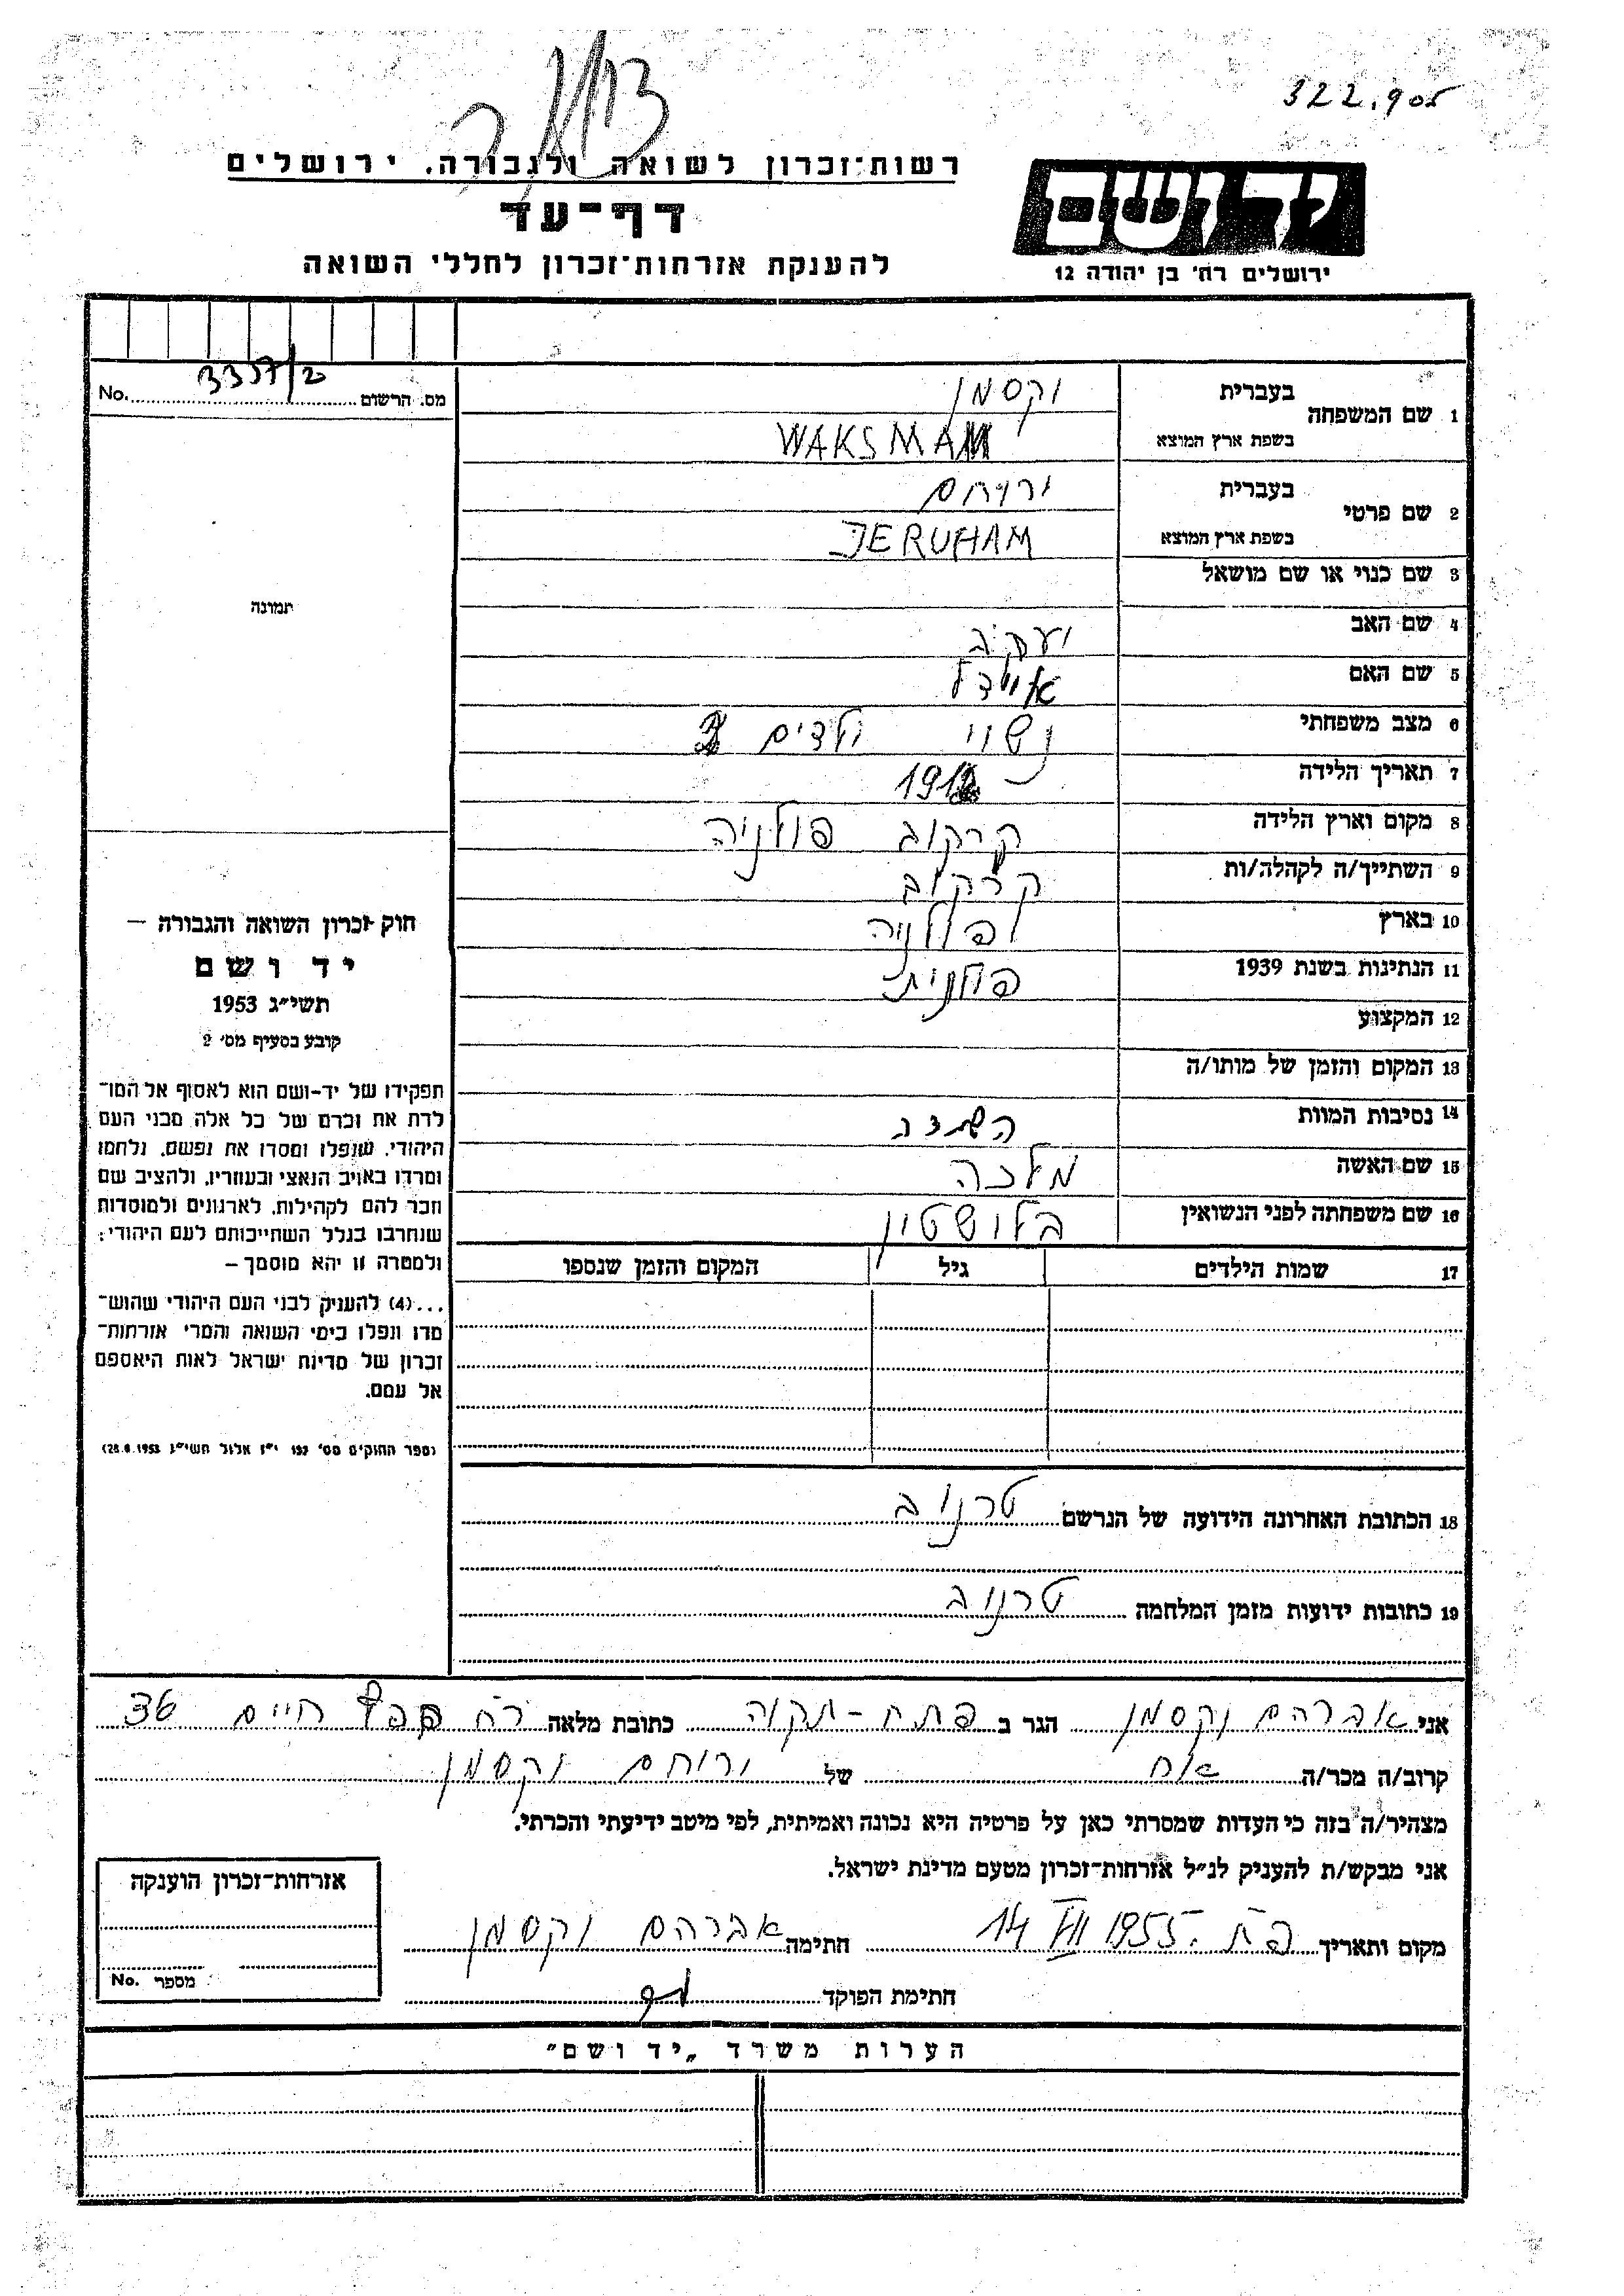 322.905
רשות־זכרון לשואה ולגבורה. ירושלים
דף־עד
להענקת אזרחות־זכרון לחללי השואה
ידושם
ירושלים רח' בן יהודה 12
מס. הרשום 3357/2 No.
1 שם המשפחה
בעברית וקסמן
בשפת ארץ המוצא WAKSMAN
2 שם פרטי
בעברית ירוחם
בשפת ארץ המוצא JERUHAM
3 שם כנוי או שם מושאל
4 שם האב יעקב
5 שם האם איידל
6 מצב משפחתי נשוי ילדים
7 תאריך הלידה
8 מקום וארץ הלידה קרקוב פולניה
9 השתייך/ה לקהלה/ות קרקוב
10 בארץ פולניה
11 הנתינות בשנת 1939 פולנית
12 המקצוע
13 המקום והזמן של מותו/ה
14 נסיבות המוות
15 שם האשה מלכה
16 שם משפחתה לפני הנשואין בלושטין
17 שמות הילדים גיל המקום והזמן שנספו
18 הכתובת האחרונה הידועה של הנרשם טרנוב
19 כתובות ידועות מזמן המלחמה טרנוב
תמונה
חוק זכרון השואה והגבורה –
יד ושם
תשי״ג 1953
קובע בסעיף מס' 2
תפקידו של יד-ושם הוא לאסוף אל המו־
לדת את זכרם של כל אלה מבני העם
היהודי, שנפלו ומסרו את נפשם, נלחמו
ומרדו באויב הנאצי ובעוזריו, ולהציב שם
וזכר להם לקהילות, לארגונים ולמוסדות
שנחרבו בגלל השתייכותם לעם היהודי;
ולמטרה זו יהא מוסמך –
...(4) להעניק לבני העם היהודי שהוש־
מדו ונפלו בימי השואה והמרי אזרחות־
זכרון של מדינת ישראל לאות היאספם
אל עמם.
(ספר החוקים מס' 132 י״ז אלול תשי״ג 28.8.1953)
אני אברהם וקסמן הגר ב פתח-תקוה כתובת מלאה רח חפץ חיים 36
קרוב/ה מכר/ה אח של ירוחם וקסמן
מצהיר/ה בזה כי העדות שמסרתי כאן על פרטיה היא נכונה ואמיתית, לפי מיטב ידיעתי והכרתי.
אני מבקש/ת להעניק לנ״ל אזרחות־זכרון מטעם מדינת ישראל.
מקום ותאריך פ ת. 14 VII 1955 חתימה אברהם וקסמן
חתימת הפוקד
אזרחות־זכרון הוענקה
מספר No.
הערות משרד „יד ושם״